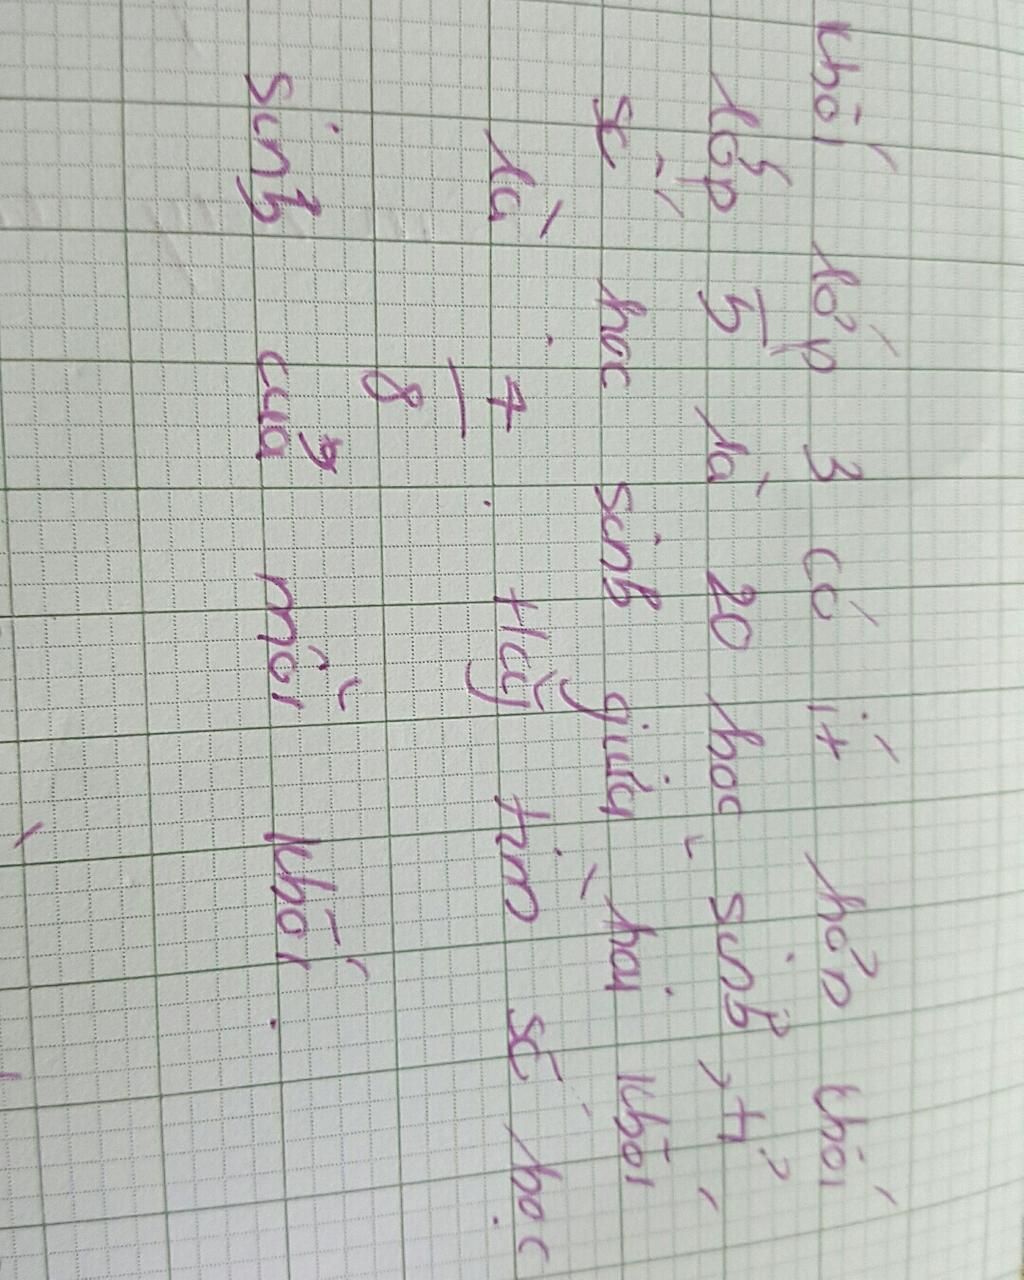 khối lớp 3 có ít hơn khối
lớp 5 là 20 học sinh, tỉ
số học sinh giữa hai khối
là 7/8. Hãy tìm số học
sinh của mỗi khối.